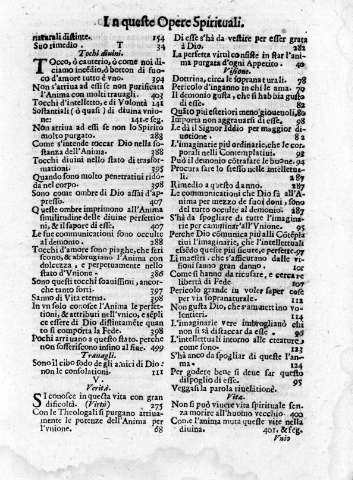 In queste Opere Spirituali.
naturali distinte. 154
Suo rimedio. T 34
Tocchi diuini.
TOcco, ò cauterio, ò come noi di-
ciamo incēdio, ò botton di fuo-
co d'amore tutto è vno. 394
Non s'arriua ad essi se non purificata
l'Anima con molti trauagli. 403
Tocchi d'intelletto, e di Volontà 141
Sostantiali ( quasi ) di diuina vnio-
ne: 141. e seg.
Non arriua ad essi se non lo Spirito
molto purgato. 283
Come s'intende toccar Dio nella so-
stanza dell'Anima. 388
Tocchi diuini nello stato di trasfor-
mationi. 395
Quando sono molto penetratiui ridō-
da nel corpo. 398
Sono come ombre di Dio assi d'ap-
presso. 407
Queste ombre imprimono all'Anima
similitudine delle diuine perfettio-
ni, & il sapore di esse. 407
Le sue communicationi sono occulte
al demonio. 288
Tocchi d'amore sono piaghe, che fan
feriscono, & abbrugiano l'Anima con
dolcezza, e perpetuamente nello
stato d'Vnione. 398
Sono questi tocchi soauissimi, ancor-
che tanto forti. 397
Sanno di Vita eterna. 398
In vn solo conosce l'Anima le perfet-
tioni, & attributi nell'vnico, e sēpli
ce essere di Dio distintamēte quan
to si comporta la Fede. 398
Pochi arriuano a questo stato, perche
non sofferiscono insino al fine. 499
Trauagli.
Sono il cibo sodo degli amici di Dio:
non le consolationi. 111
V.
Verità.
SI conosce in questa vita con gran
dificoltà. (Virtù) 275
Con le Theologali si purgano attiua-
mente le potenze dell'Anima per
l'vnione. 68
Di esse s'hà da vestire per esser grata
à Dio. 282
La perfetta virtù consiste in star l'ani-
ma purgata d'ogni Appetito. 40
Visione.
Dottrina, circa le sopranaturali. 78
Pericolo d'inganno in chi le ama. 70
Il demonio gusta, che si habbia gusto
di esse. 82
Quāto piu esteriori meno gioueuoli, 80
Importa non aggrauarsi di esse. 98
Le dà il Signor Iddio per maggior di-
uotione. 82
L'imaginarie più ordinarie, che le cor
porali nelli Contemplatiui. 92
Può il demonio cōtrafare le buone. 94
Procura fare lo stesso nelle intellettua-
li. 287
Rimedio a questo danno. 287
Le communicationi che Dio fà all'A-
nima per mezzo de suoi doni, sono
del tutto occulte al demonio. 287
S'hà da spogliare di tutte l'imagina-
rie per caminar all'Vnione. 95
Perche Dio comunica più alli Cōtēpla
tiui l'imaginarie, che l'intellettuali
essēdo quelle più sicure, e perfette. 97
Li maestri, che s'assicurano dalle vi-
sioni fanno gran danno. 101
Come si hanno da ricusare, e cercare
libertà di Fede. 107
Pericolo grande in voler saper cose
per via sopranaturale. 112
Non gusta Dio, che s'amettino vo-
lontieri. 112
L'imaginarie vere imbrogliano chi
non si sà distaccar da esse. 95
L'intellettuali intorno alle creature,
come sono: 123
S'hà anco da spogliar di queste l'ani-
ma. 124
Per godere bene si deue far questo
dispoglio di esse. 95
Veggasi la parola riuelatione.
Vita.
Non si può viuere vita spirituale sen-
za morire all'huomo vecchio 400
Come l'anima muta queste vite nella
diuina. 401. & seg.
Vnio